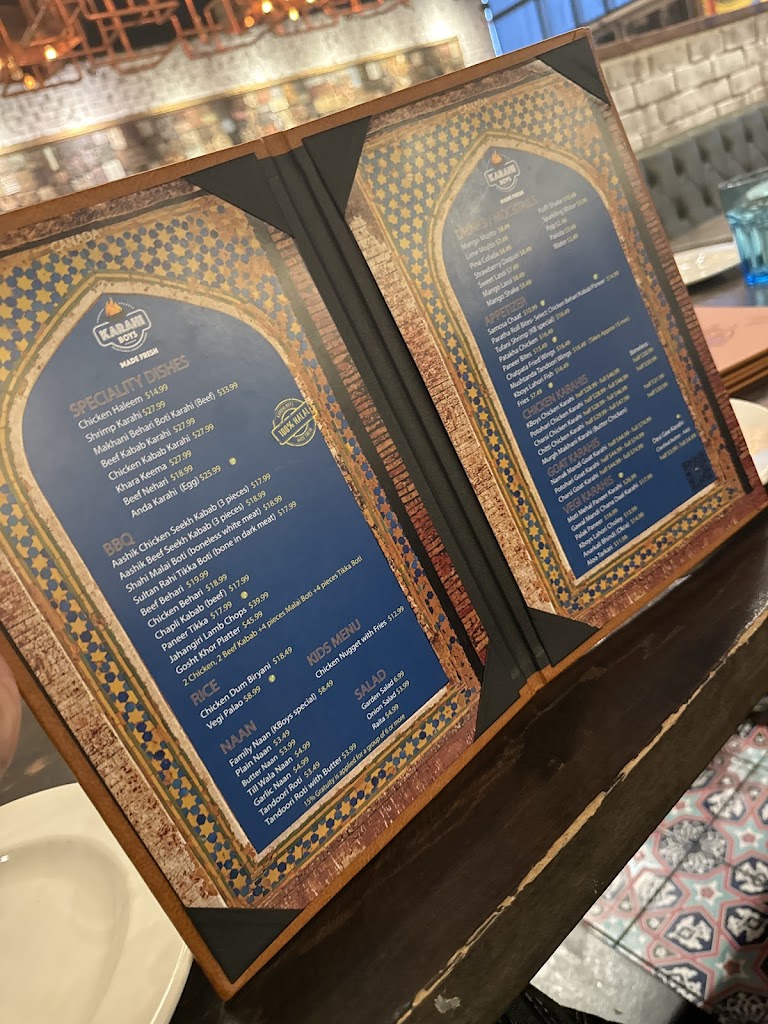 KARAHI
BOYS
MADE FRESH
SPECIALITY DISHES
Chicken Haleem $14.99
Shrimp Karahi $27.99
Makhani Behari Boti Karahi (Beef) $33.99
Beef Kabab Karahi $27.99
Chicken Kabab Karahi $27.99
Khara Keema $27.99
Beef Nehari $18.99
Anda Karahi (Egg) $25.99
100% HALAL
BBQ
Aashik Chicken Seekh Kabab (3 pieces) $17.99
Aashik Beef Seekh Kabab (3 pieces) $18.99
Shahi Malai Boti (boneless white meat) $18.99
Sultan Rahi Tikka Boti (bone in dark meat) $17.99
Beef Behari $19.99
Chicken Behari $18.99
Chapli Kabab (beef) $17.99
Paneer Tikka $17.99
Jahangiri Lamb Chops $39.99
Gosht Khor Platter $45.99
2 Chicken, 2 Beef Kabab +4 pieces Malai Boti +4 pieces Tikka Boti
RICE
Chicken Dum Biryani $18.49
Vegi Palao $8.99
KIDS MENU
Chicken Nugget with Fries $12.99
NAAN
Family Naan (KBoys special) $8.49
Plain Naan $3.49
Butter Naan $3.99
Till Wala Naan $4.99
Garlic Naan $4.99
Tandoori Roti $3.49
Tandoori Roti with Butter $3.99
SALAD
Garden Salad 6.99
Onion Salad $3.99
Raita $4.99
15% Gratuity is applied for a group of 6 or more
KARAHI
BOYS
MADE FRESH
Mango Mojito $8.49
Lime Mojito $7.49
Pina Colada $8.49
Strawberry Daiquiri $8.49
Sweet Lassi $7.49
Mango Lassi $8.49
Mango Shake $8.49
Kulfi Shake
Sparkling Water
Pop
Pakola
Water
APPETIZER
Samosa Chaat $10.99
Paratha Roll Bites- Select: Chicken Behari/Kabab/Paneer $14.99
Tufani Shrimp (KB special) $18.49
Patakha Chicken $16.49
Paneer Bites $15.49
Chatpata Fried Wings $16.49
Mushtanda Tandoori Wings $18.49
KBoys Lahori Fish $16.49
Fries $7.49
CHICKEN KARAHIS
KBoys Chicken Karahi
Potohari Chicken Karahi
Charsi Chicken Karahi
Chitti Chicken Karahi
Murgh Makhani Karahi (Butter Chicken)
Boneless:
GOAT KARAHIS
Namak Mandi Goat Karahi
Potohari Goat Karahi
Charsi Goat Karahi
VEGI KARAHIS
Moti Mehal Paneer Karahi
Gawal Mandi Chana Daal Karahi $17.99
Palak Paneer
KBoys Lahori Choley
Anarkali Bhindi (Okra)
Aloo Tarkari $11.99
Desi Gee Karahi